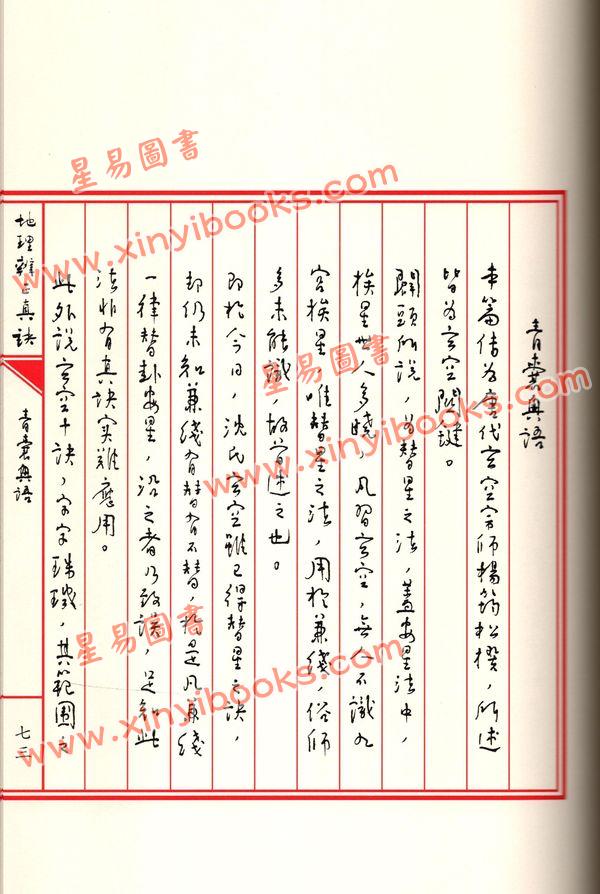 青囊奧語
本篇傳為唐代玄空宗師楊筠松撰，所述
皆為玄空關鍵。
開頭所說，為替星之法，蓋安星法中，
挨星世人多曉，凡習玄空，無人不識九
宮挨星，唯替星之法，用於兼綫，俗師
多未能識，故首述之也。
即於今日，沈氏玄空雖已得替星之訣，
却仍未知兼綫有替有不替，於是凡兼綫
一律替卦安星，沿之者乃致誤，足知此
法非有真訣實難應用。
此外說玄空十訣，字字珠璣，其範圍之
地理辨正真訣
青囊奧語
七三
星易圖書
www.xinyibooks.com
星易圖書
www.xinyibooks.com
星易圖書
www.xinyibooks.com